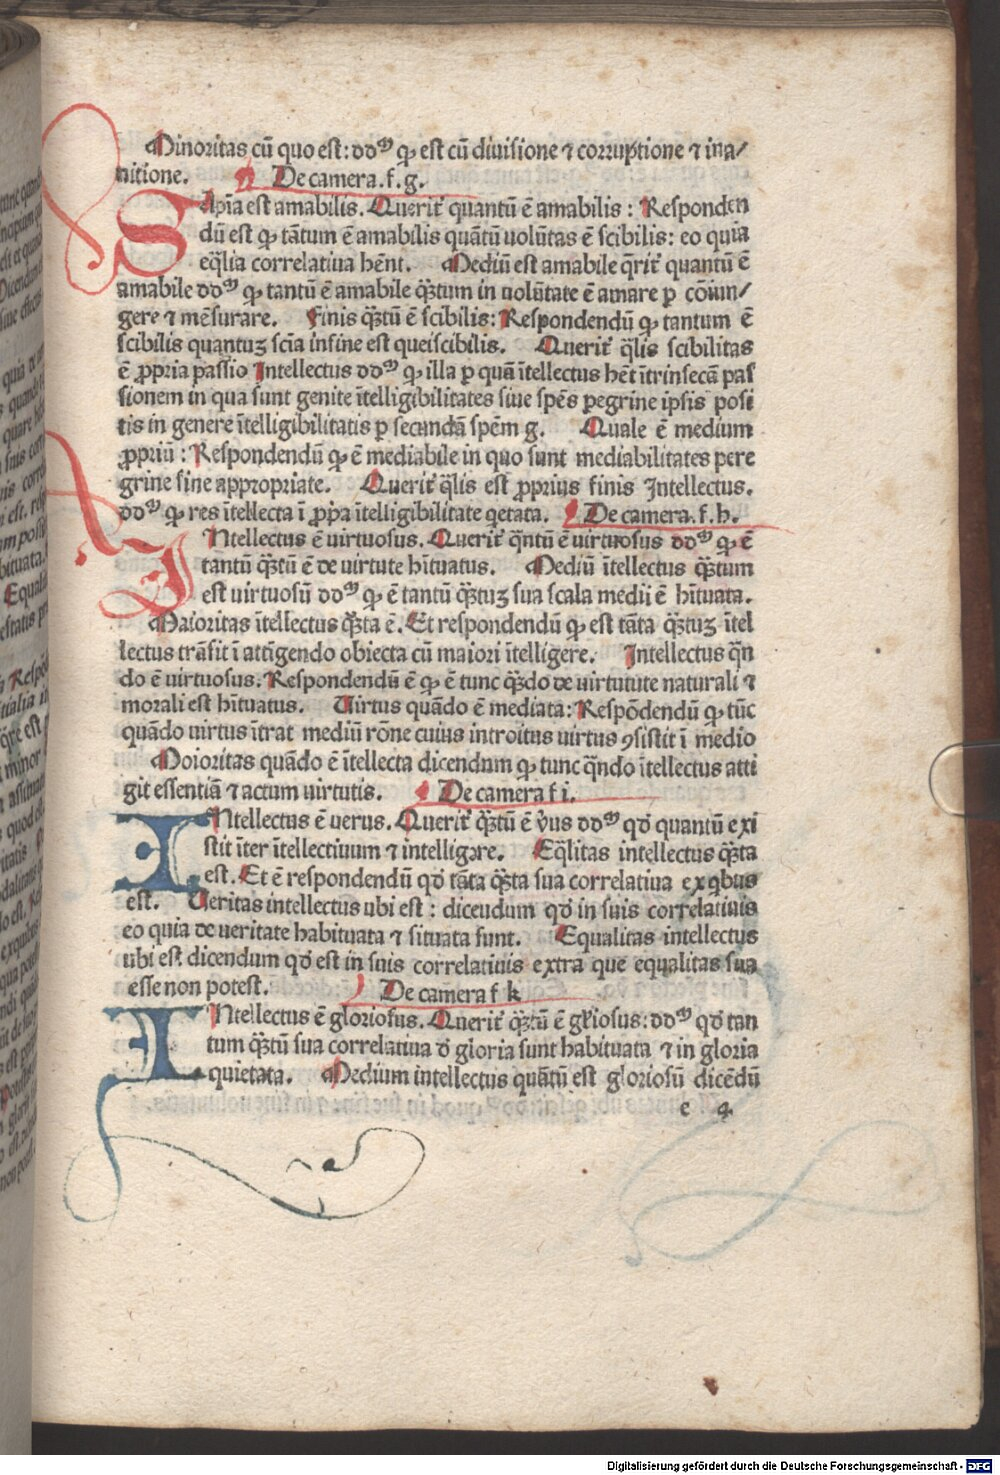 Minoritas cū quo est: ꝺꝺᵐ ꝙ est cū diuisione ⁊ corruptione ⁊ ina/
nitione. De camera. f. g.
SApīa est amabilis. Querit᷑ quantū ē amabilis : Responden
dū est ꝙ tātum ē amabilis quātū uolūtas ē scibilis: eo quia
eq̄lia correlatiua hēnt. Mediū est amabile q̄rit᷑ quantū ē
amabile ꝺꝺᵐ ꝙ tantū ē amabile q̄ꝫtum in uolūtate ē amare p cōiun/
gere ⁊ mēsurare. Finis q̄ꝫtū ē scibilis: Respondendū ꝙ tantum ē
scibilis quantuꝫ scīa in fine est queiscibilis. Querit᷑ q̄lis scibilitas
ē ꝓpria passio Intellectus ꝺꝺᵐ ꝙ illa p quā ītellectus hēt ītrinsecā pas
sionem in qua sunt genite ītelligibilitates siue spēs peregrine ipsis posi
tis in genere ītelligibilitatis p secundā spēm g. Quale ē medium
ꝓpriū : Respondendū ꝙ ē mediabile in quo sunt mediabilitates pere
grine sine appropriate. Querit᷑ q̄lis est ꝓprius finis Intellectus.
ꝺꝺᵐ ꝙ res ītellecta ī ꝓpria ītelligibilitate qetata. De camera. f. h.
INtellectus ē uirtuosus. Querit᷑ q̄ntū ē uirtuosus ꝺꝺᵐ ꝙ ē
tantū q̄ꝫtū ē de uirtute hītuatus. Mediū ītellectus q̄ꝫtum
est uirtuosū ꝺꝺᵐ ꝙ ē tantū q̄ꝫtuꝫ sua scala medii ē hītuata.
Maioritas ītellectus q̄ꝫta ē. Et respondendū ꝙ est tāta q̄ꝫtuꝫ ītel
lectus trāsit ī attīgendo obiecta cū maiori ītelligere. Intellectus q̄n
do ē uirtuosus: Respondendū ē ꝙ ē tunc q̄ꝫdo de uirtutute naturali ⁊
morali est hītuatus. Uirtus quādo ē mediata: Respōdendū ꝙ tūc
quādo uirtus ītrat mediū rōne cuius introitus uirtus ꝯsistit ī medio
Moioritas quādo ē ītellecta dicendum ꝙ tunc q̄ndo ītellectus atti
git essentiā ⁊ actum uirtutis. De camera f i.
INtellectus ē uerus. Querit᷑ q̄ꝫtū ē ūus ꝺꝺᵐ qꝺ quantū exi
stit īter ītellectiuum ⁊ intelligere. Eq̄litas intellectus q̄ꝫta
est. Et ē respondendū qꝺ tāta q̄ꝫta sua correlatiua ex qͥbus
est. Ueritas intellectus ubi est : dicendum qꝺ in suis correlatiuis
eo quia de ueritate habituata ⁊ situata sunt. Equalitas intellectus
ubi est dicendum qꝺ est in suis correlatiuis extra que equalitas sua
esse non potest. De camera f k
INtellectus ē gloriosus. Querit᷑ q̄ꝫtū ē gľiosus: ꝺꝺᵐ qꝺ tan
tum q̄ꝫtū sua correlatiua ꝺ gloria sunt habituata ⁊ in gloria
quietata. Medium intellectus quātū est gloriosū dicēdū
e 4
Digitalisierung gefördert durch die Deutsche Forschungsgemeinschaft - DFG